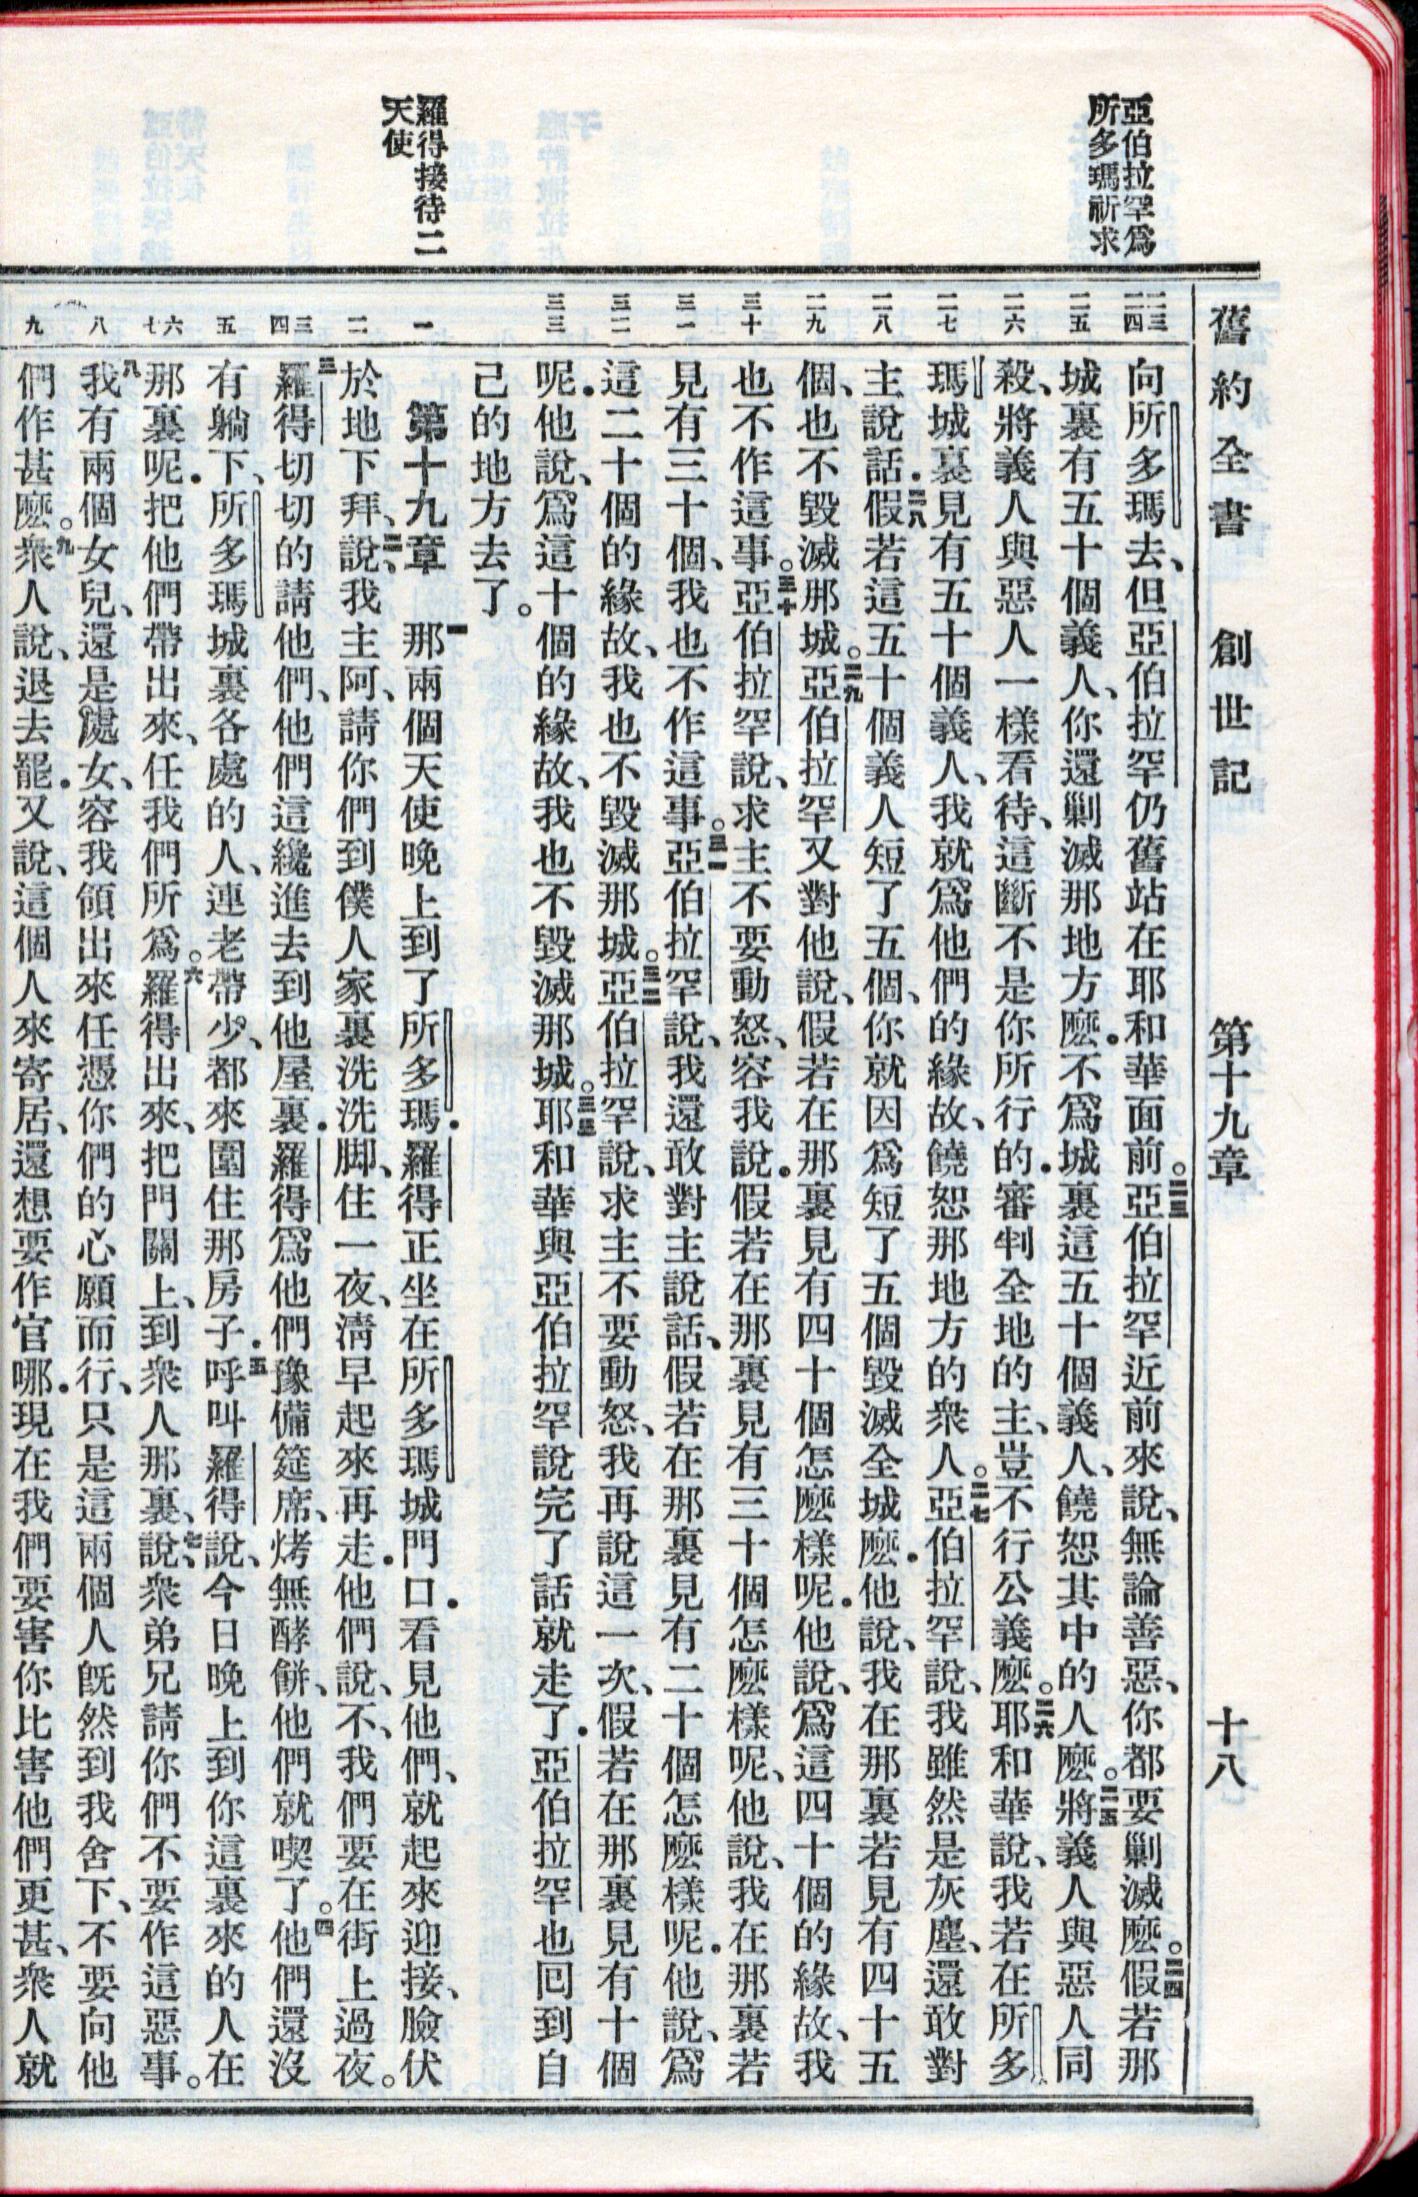 舊約全書　創世記　第十九章　十八
亞伯拉罕爲
所多瑪祈求
羅得接待二
天使
二三
二四
二五
二六
二七
二八
二九
三十
三一
三二
三三
一
二
三
四
五
六
七
八
九
向所多瑪去、但亞伯拉罕仍舊站在耶和華面前。二三亞伯拉罕近前來說、無論善惡、你都要剿滅麽。二四假若那
城裏有五十個義人、你還剿滅那地方麽．不爲城裏這五十個義人、饒恕其中的人麽。二五將義人與惡人同
殺、將義人與惡人一樣看待、這斷不是你所行的．審判全地的主、豈不行公義麽。二六耶和華說、我若在所多
瑪城裏見有五十個義人、我就爲他們的緣故、饒恕那地方的衆人。二七亞伯拉罕說、我雖然是灰塵、還敢對
主說話．二八假若這五十個義人短了五個、你就因爲短了五個毀滅全城麽．他說、我在那裏若見有四十五
個、也不毀滅那城。二九亞伯拉罕又對他說、假若在那裏見有四十個怎麽樣呢．他說、爲這四十個的緣故、我
也不作這事。三十亞伯拉罕說、求主不要動怒、容我說．假若在那裏見有三十個怎麽樣呢、他說、我在那裏若
見有三十個、我也不作這事。三一亞伯拉罕說、我還敢對主說話、假若在那裏見有二十個怎麽樣呢．他說、爲
這二十個的緣故、我也不毀滅那城。三二亞伯拉罕說、求主不要動怒、我再說這一次、假若在那裏見有十個
呢．他說、爲這十個的緣故、我也不毀滅那城。三三耶和華與亞伯拉罕說完了話就走了．亞伯拉罕也回到自
己的地方去了。
第十九章　一那兩個天使晚上到了所多瑪．羅得正坐在所多瑪城門口．看見他們、就起來迎接、臉伏
於地下拜、二說、我主阿、請你們到僕人家裏洗洗脚、住一夜、淸早起來再走．他們說、不、我們要在街上過夜。
三羅得切切的請他們、他們這纔進去到他屋裏．羅得爲他們豫備筵席、烤無酵餅、他們就喫了。四他們還沒
有躺下、所多瑪城裏各處的人、連老帶少、都來圍住那房子．五呼叫羅得說、今日晚上到你這裏來的人在
那裏呢．把他們帶出來、任我們所爲。六羅得出來、把門關上、到衆人那裏、七說、衆弟兄請你們不要作這惡事。
八我有兩個女兒、還是處女、容我領出來任憑你們的心願而行、只是這兩個人旣然到我舍下、不要向他
們作甚麽。九衆人說、退去罷．又說、這個人來寄居、還想要作官哪．現在我們要害你比害他們更甚、衆人就